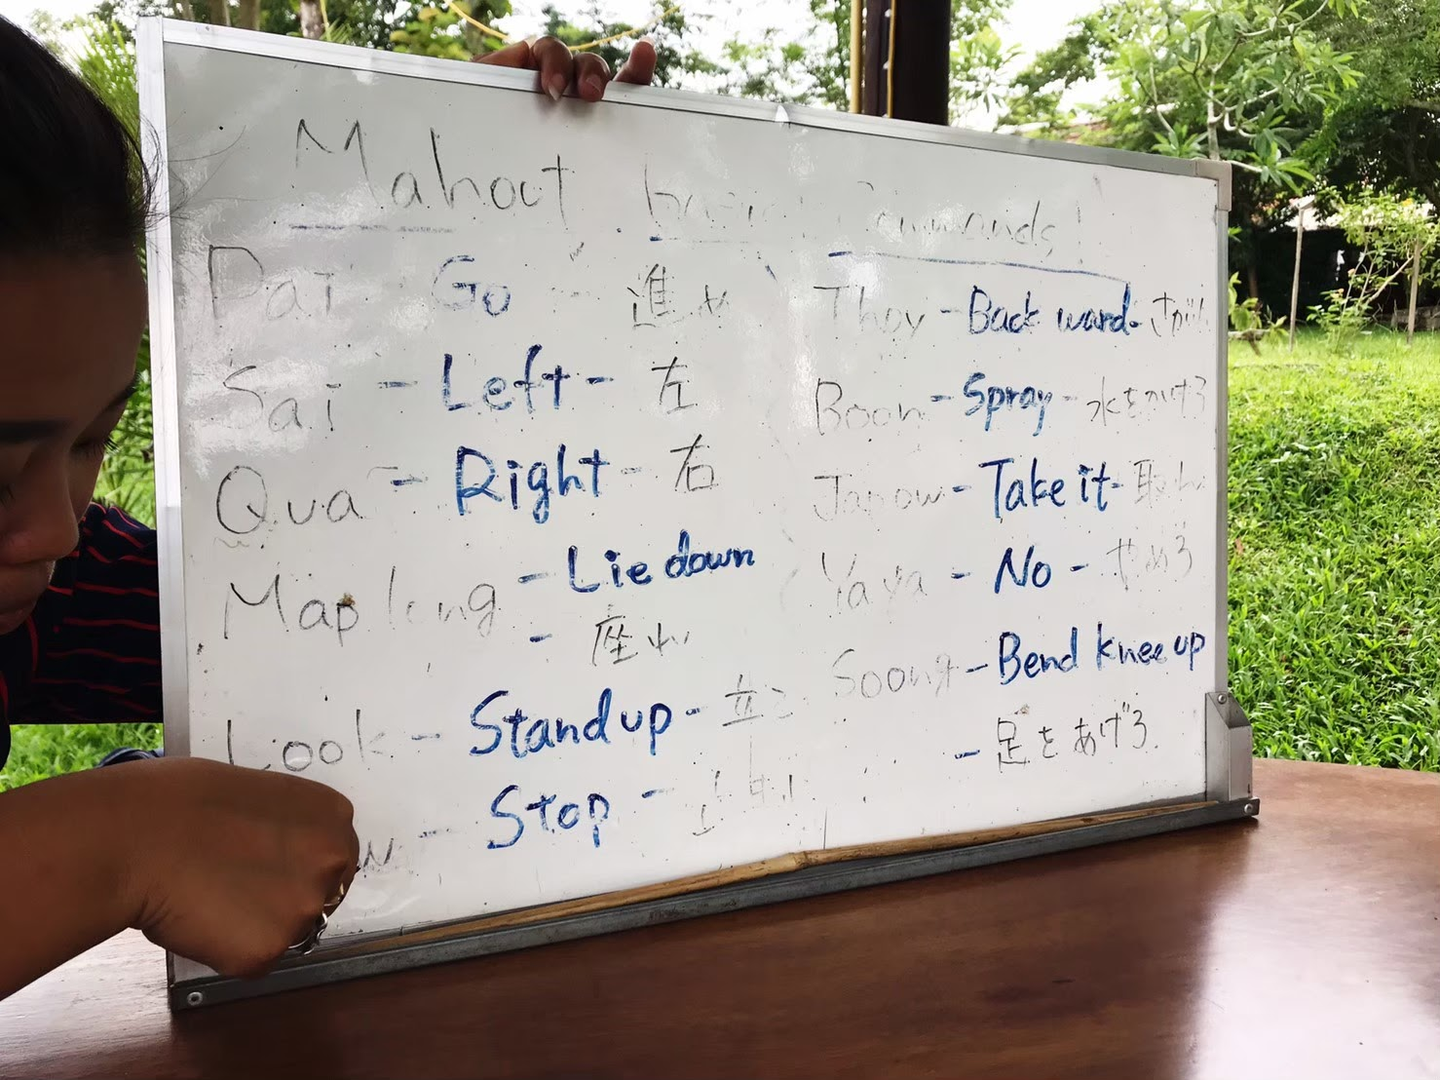 Mahoot basic Commands!
Pai Go - 進め
Sai - Left - 左
Qua - Right - 右
Map long - Lie down
- 座れ
Look - Stand up - 立て
- Stop -
Thoy - Back ward - さがれ
Boon - Spray - 水をかけろ
Japow - Take it - 取れ
Yaya - No - やめろ
Soong - Bend knee up
- 足をあげろ